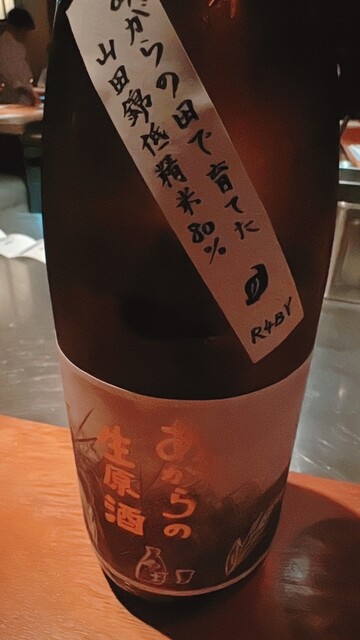 あからの田で育てた
山田錦低精米80%
R4BY
あからの
生原酒